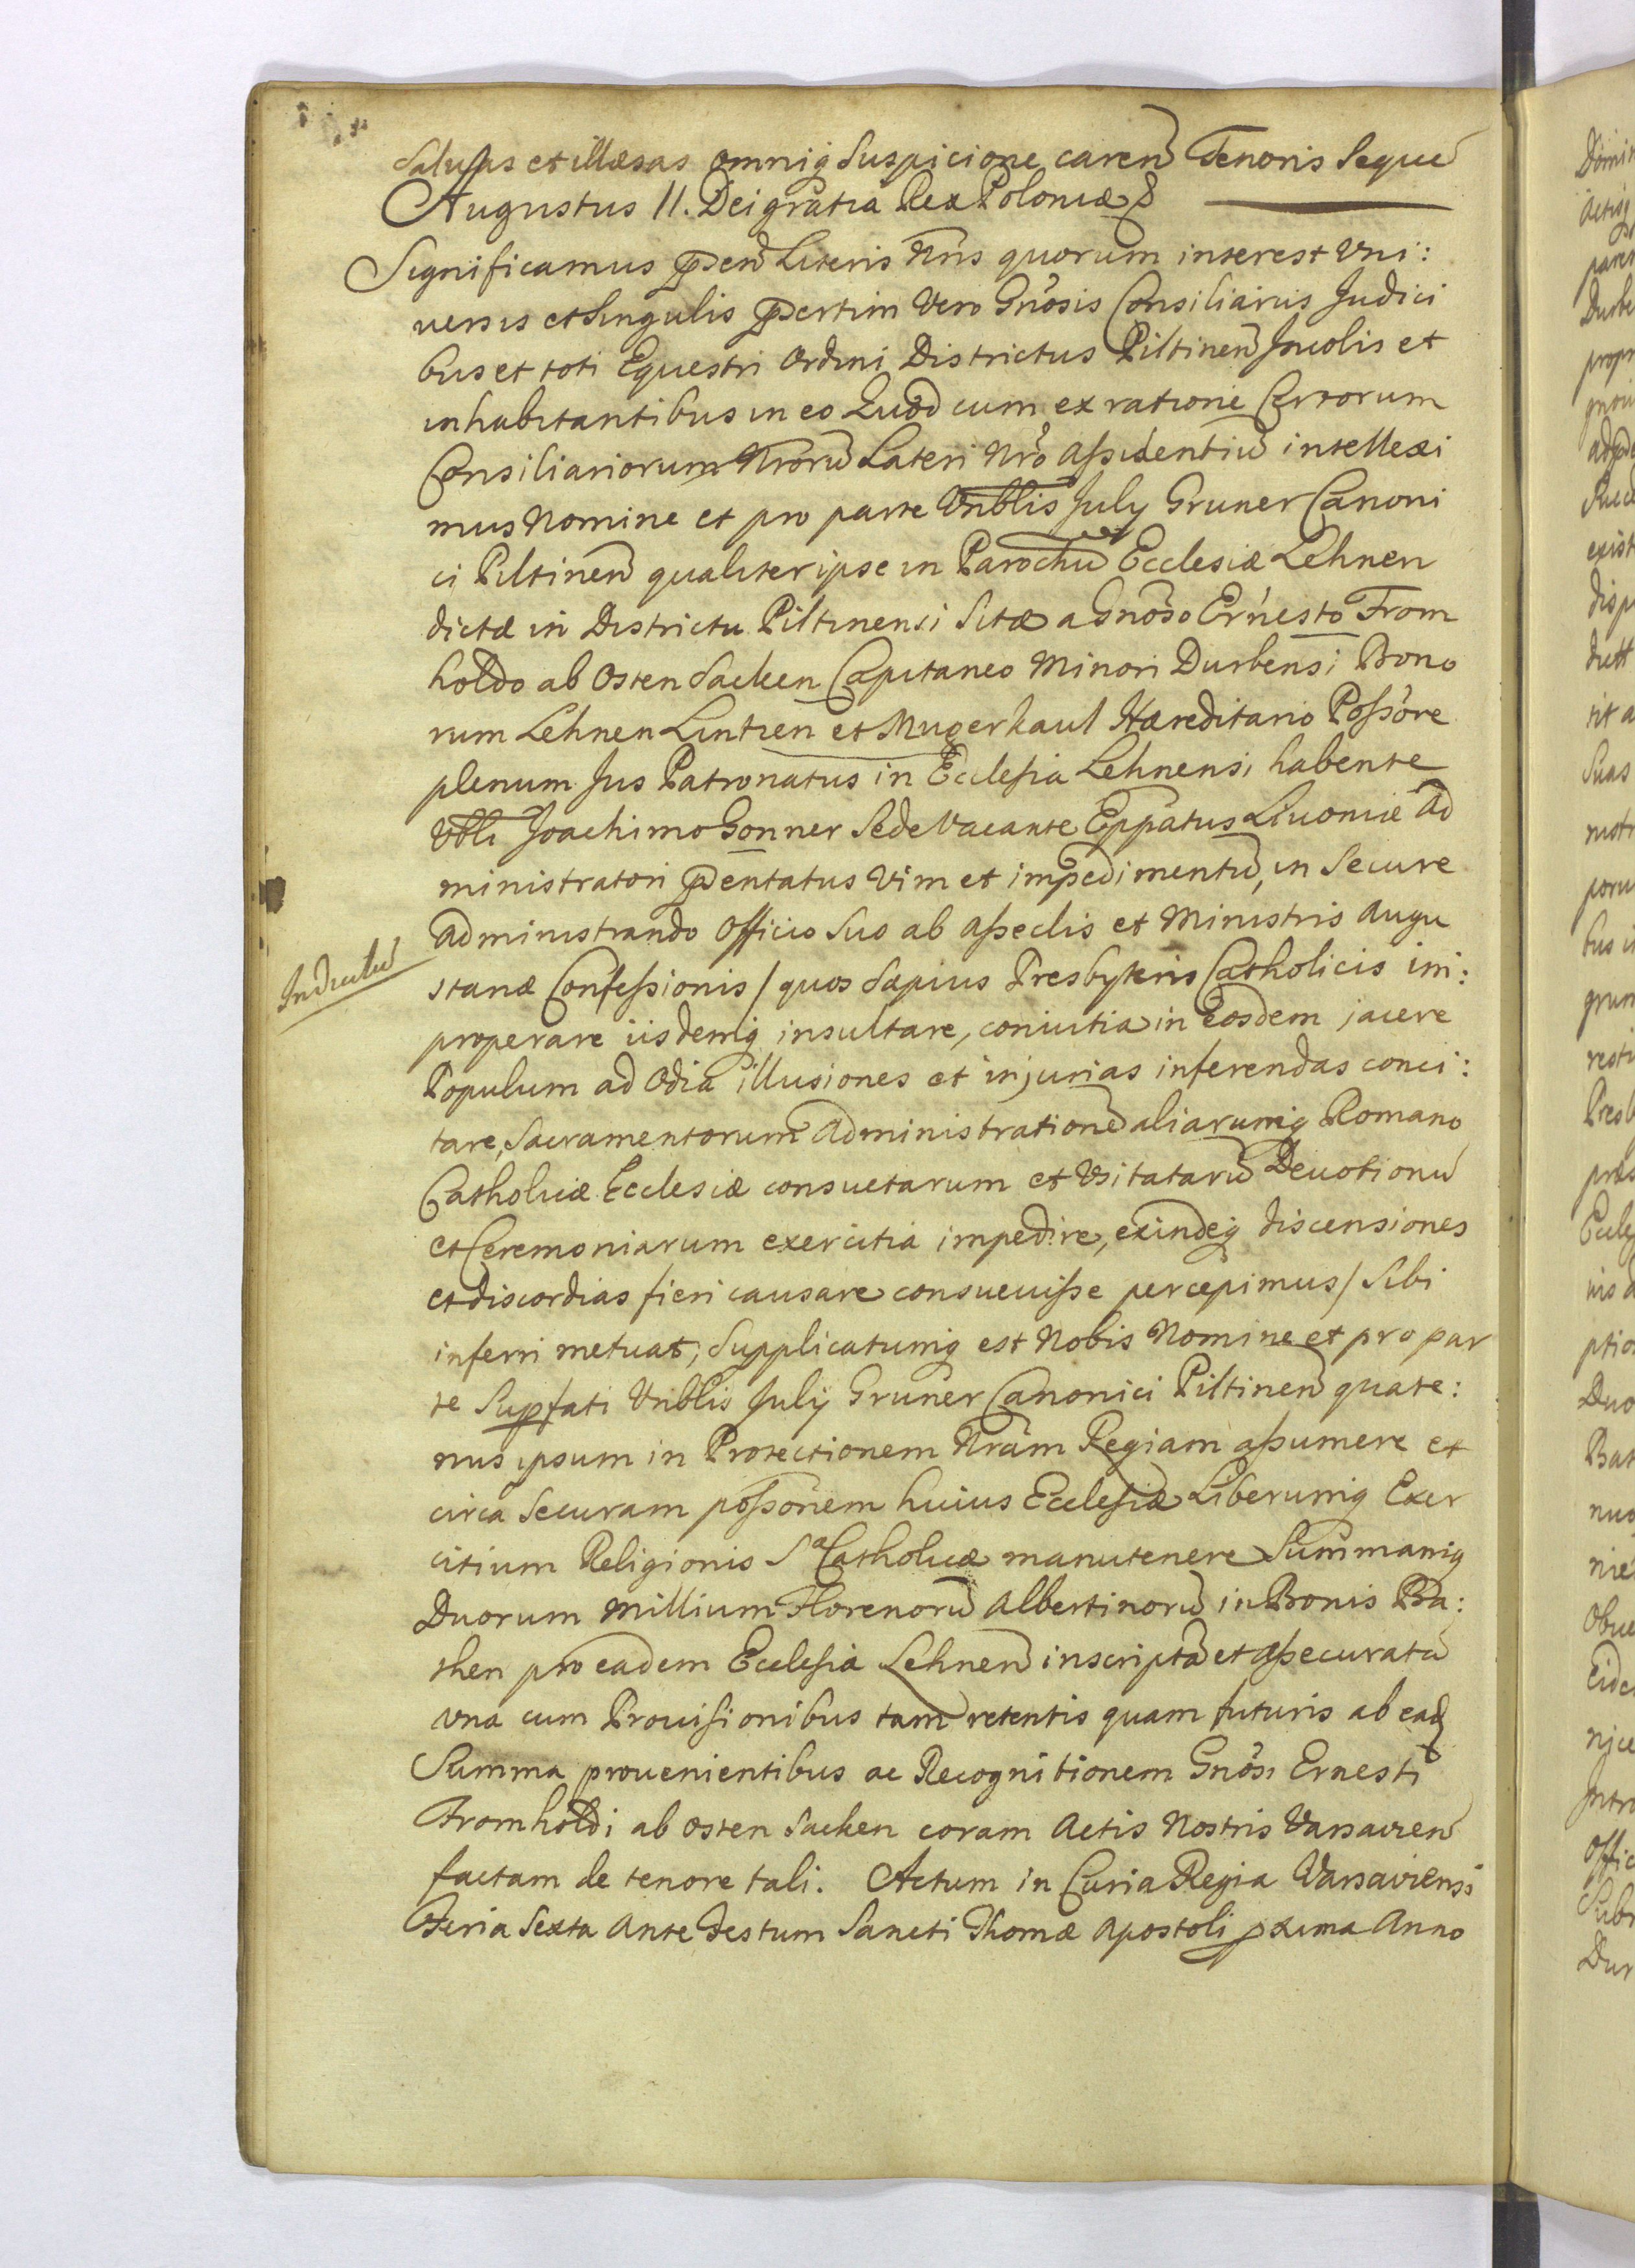 Salusas et illæsas omniq̃ Suspicione caren̄ Tenoris Seque
Augustus II. Dei gratia Rex Poloniæ
Significamus p̄sen̄ Literis Nr̄is quorum interest Vni:
uersis et Singulis p̄sertim Vero Gnosis Consiliariis Judici
bus et toti Equestri Ordini Districtus Piltinen̄ Incolis et
inhabitantibus in eo Quod cum ex ratione Certorum
Consiliariorum Nr̄orū Lateri Nr̄o Assidentiū intellexi
mus Nomine et pro parte Vnblis July Gruner Canoni
ci Piltinen̄ qualiter ipse in Parochū Ecclesiæ Lehnen
dictæ in Districtu Piltinensi Sitæ a Gnoso Ernesto From
holdo ab Osten Sacken Capitaneo Minori Durbensi Bono
rum Lehnen Lintzen et Mugerkaul Hæreditario Possore
plenum Jus Patronatus in Ecclesia Lehnensi habente
Vbli Joachimo Gonner Sede Vacante Eppatus Liuoniæ Ad
ministratori p̄sentatus Vim et impedimentū, in Secure
Administrando Officio Suo ab Asseclis et Ministris Augu
Indultū
stanæ Confessionis / quos Sæpius Presbyteris Catholicis im:
properare iisdemq̃ insultare, conuitia in Eosdem jacere
Populum ad Odia illusiones et injurias inferendas conci:
tare, Sacramentorum Administrationē aliarumq̃ Romano
Catholicæ Ecclesiæ consuetarum et Vsitatarū Deuotionū
et Ceremoniarum exercitia impedire, exindeq̃ discensiones
et discordias fieri causare consueuisse percepimus / Sibi
inferri metuat; Supplicatumq̃ est Nobis Nomine et pro par
te Supfati Vnblis Julij Gruner Canonici Piltinen̄ quate:
nus ipsum in Protectionem Nr̄am Regiam assumere et
circa Securam possonem huius Ecclesiæ Liberumq̃ Exer
citium Religionis Sæ Catholicæ manutenere Summamq̃
Duorum Millium Florenorū Albertinorū in Bonis Ba:
then pro eadem Ecclesia Lehnen̄ inscriptā et assecuratā
Vna cum Prouisionibus tam retentis quam futuris ab ead
Summa prouenientibus ac Recognitionem Gnosi Ernesti
Fromholdi ab Osten Sacken coram Actis Nostris Varsavien̄
factam de tenore tali. Actum in Curia Regia Varsaviensi
Feria Sexta Ante Festum Sancti Thomæ Apostoli p̄xima Anno